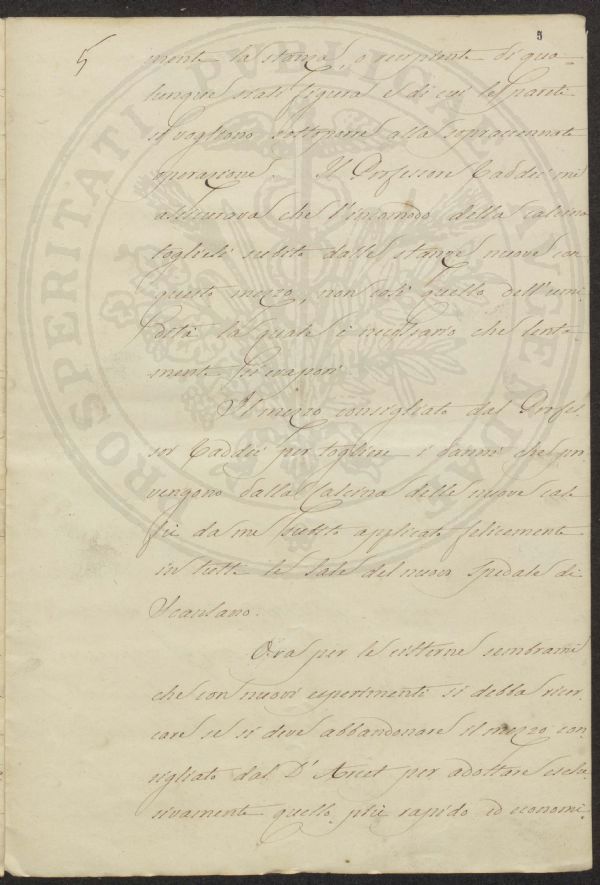 5
5
mente la stanza, o recipiente di qua-
lunque siasi figura e di cui le pareti
si vogliono sottoporre alla sopraccennata
operazione. Il Professore Taddei mi
assicurava che l'incomodo della calcina
toglieli subito dalle stanze nuove con
questo mezzo, non così quello dell'umi-
dità la quale è necessario che lenta-
mente si evapori.
Il mezzo consigliato dal Profes-
sor Taddei per togliere i danni che pro-
vengono dalla calcina delle nuove case
fu da me subito applicato felicemente
in tutte le sale del nuovo spedale di
Scansano.
Ora per le cisterne sembrami
che con nuovi esperimenti si debba ricer-
care se si deve abbandonare il mezzo con-
sigliato dal D'Arcet per adottare esclu-
sivamente quello più rapido ed economi-
PROSPERITATI PUBLICAE AUGENDAE